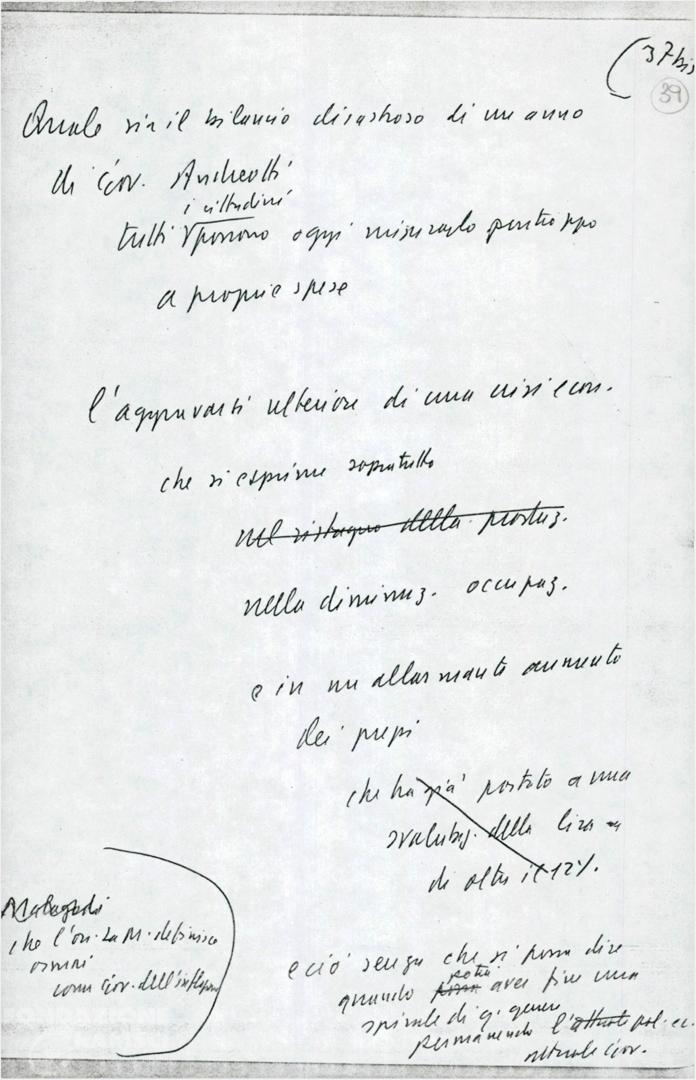 37 bis
39
Quale sia il bilancio disastroso di un anno
di Gov. Andreotti
i cittadini
tutti possono oggi misurarlo purtroppo
a proprie spese
l'aggravarsi ulteriore di una crisi econ.
che si esprime sopratutto
nel ristagno della produz.
nella diminuz. occupaz.
e in un allarmante aumento
dei prezzi
che ha già portato a una
svalutaz. della lira
di oltre il 12%.
Malagodi
che l'on. La M. definisce
ormai
come Gov. dell'inflazione
e ciò senza che si possa dire
quando potrà aver fine una
spirale di q. genere
permanendo l'attuale pol. ec.
attuale Gov.